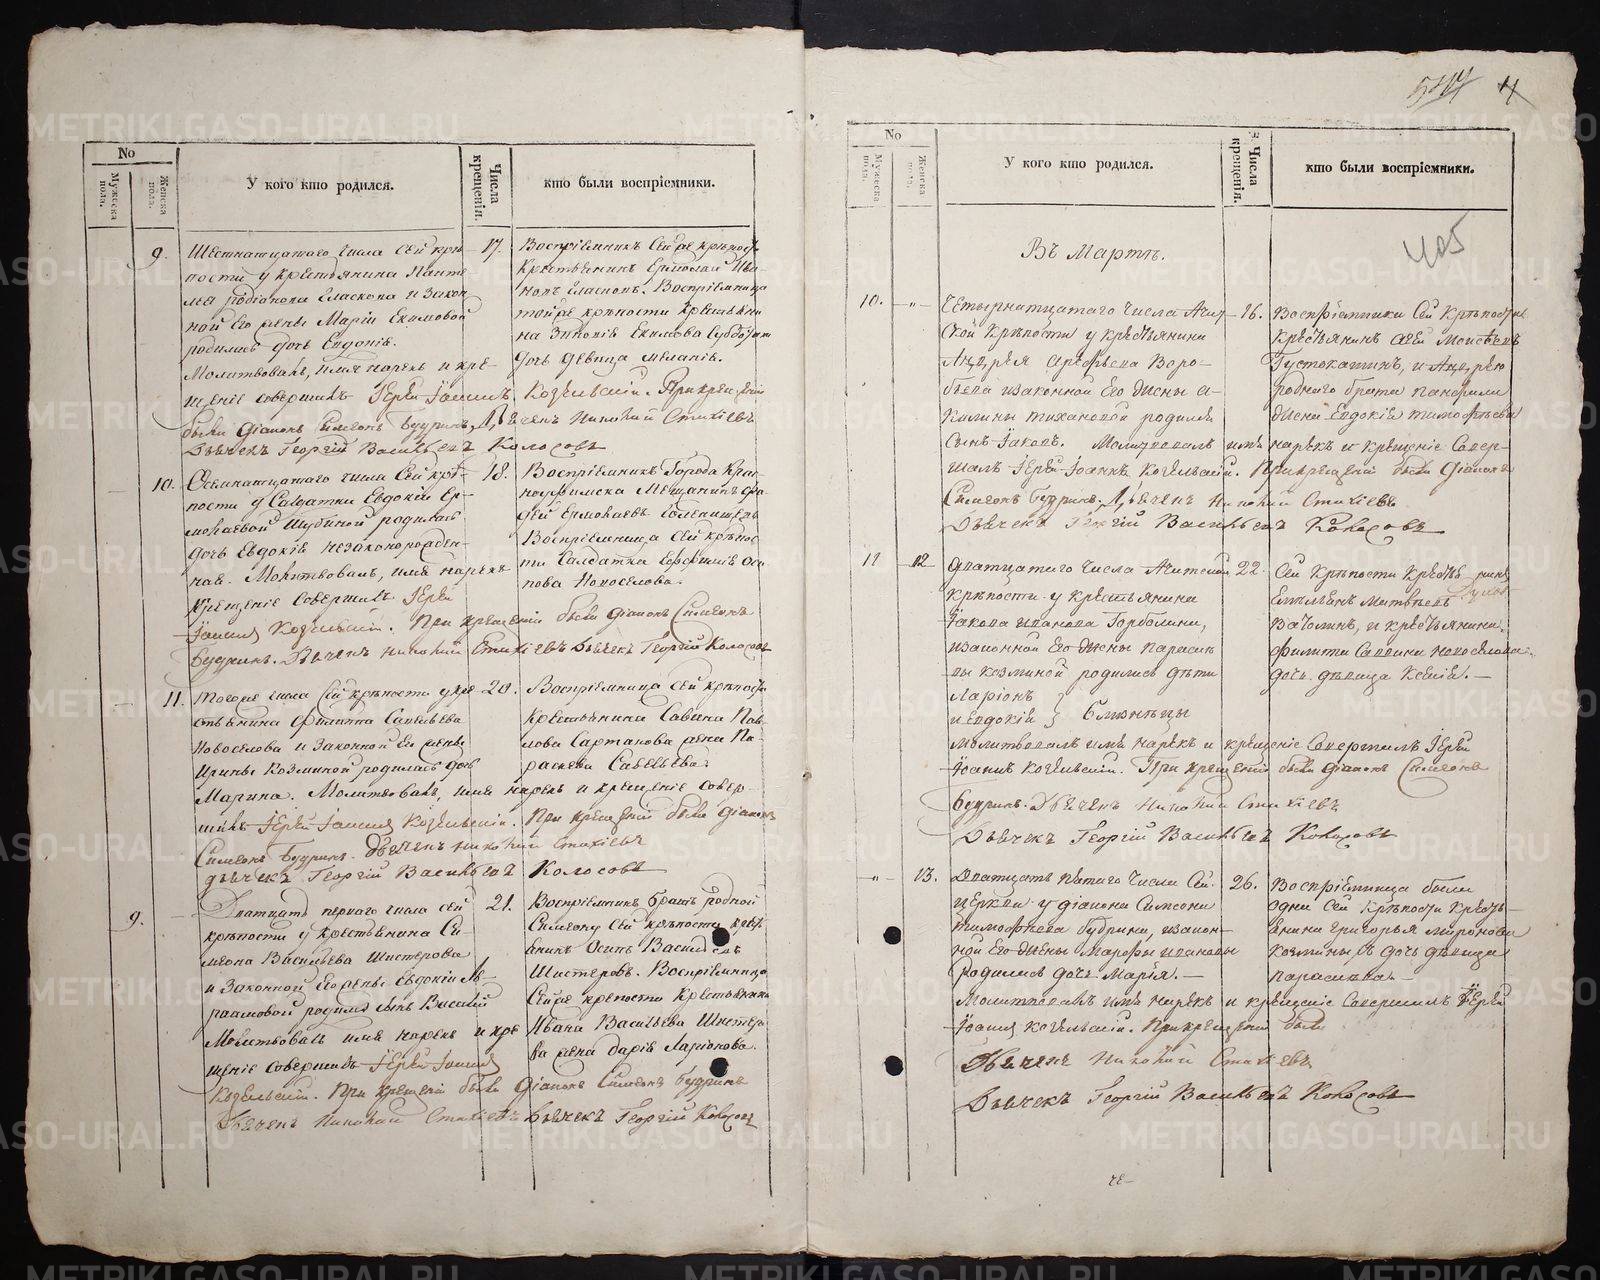 No
Мужеска пола.
Женска пола.
У кого кто родился.
Числа крещенія.
кто были воспріемники.
9.
Шестнатцатого числа Сей крѣ-
пости у крестьянина
родіонова и закон
ной Его жены Маріи Екимовой
родилась дочь Евдокія.
Молитвовалъ, имя нарекъ и кре-
щеніе совершилъ Іерей Іоаннъ
были діаконъ Симеонъ Будринъ, Дьячекъ Никон
Дьячекъ Георгій Васильевъ Колосовъ
17.
Воспріемникъ Сей же крѣпости
Крестьянинъ Ермолай Ива-
новъ Власковъ. Воспріемница
той же крѣпости крестьяни
на Зиновія Екимова
дочь девица
При крещеніи
10.
Осемнатцатого числа Сей крѣ-
пости у Салдатки Евдокіи Ер-
молаевой родилась
дочь Евдокія незаконорожден-
ная. Молитвовалъ, имя нарекъ
и крещеніе совершилъ Іерей
Іоаннъ При крещеніи были діаконъ Симеонъ
Будринъ. Дьячекъ Дьячекъ Георгій Колосовъ
18.
Воспріемникъ Города Крас-
ноуфимска Мещанинъ
Ермолаевъ
Воспріемница сей крѣпос
ти Салдатка Оси-
пова Новоселова.
11.
Того же числа Сей крѣпости у кре
стьянина Филиппа Савельева
Новоселова и законной Ево жены
Ирины Козминой родилась дочь
Марина. Молитвовалъ, имя нарекъ и крещеніе совер-
шилъ Іерей Іоаннъ При крещеніи были діаконъ
Симеонъ Будринъ. Дьячекъ
Дьячекъ Георгій Васильевъ Колосовъ
20.
Воспріемница сей крѣпости
Крестьянина Савина Пав-
лова Сартакова жена Па-
раскева Савельева.
9.
Дватцать перваго числа сей
крѣпости у крестьянина Си-
меона Васильева Шистерова
и Законной Его жены Евдокіи Ав-
раамовой родился сынъ Василій
Молитвовалъ имя нарекъ и кре
щеніе совершилъ Іерей Іоаннъ
При крещеніи были діаконъ Симеонъ Будринъ
Дьячекъ Дьячекъ Георгій Колосовъ
21.
Воспріемникъ братъ родной
Симеону Сей крѣпости крест
янинъ Осипъ Васильевъ
Шистеровъ. Воспріемница
Сей же крепости Крестьянина
Ивана Васильева Шистеро
ва жена Дарія Ларіонова.
544 4
No
Мужеска пола.
Женска пола.
У кого кто родился.
Числа крещенія.
кто были воспріемники.
405
Въ Мартѣ.
10.
Четырнатцатого числа Ачит-
ской Крѣпости у крестьянина
Андрея Арефьева Воро-
бьева и законной Его жены а-
килины тихановой родился
сынъ Іаковъ. Молитвовалъ имя нарекъ и крещеніе Совер-
шилъ Іерей Іоаннъ При крещеніи были діаконъ
Симеонъ Будринъ. Дьячекъ
Дьячекъ Георгій Васильевъ Колосовъ
16.
Воспріемники Сей Крѣпости
Крестьянинъ Моисеевъ
Пустохатинъ, и Андрею
роднаго брата
жена Евдокія тимофѣева
11
12
дватцатаго числа Ачитской
крѣпости у крестьянина
Іакова иванова Горболина,
и законной Его жены Параскѣ
вы козминой родились дѣти
Ларіонъ
и Евдокія } близнецы
молитвовалъ имя нарекъ и крещеніе Совершилъ Іерей
Іоаннъ При крещеніи были діаконъ Симеонъ
Будринъ. Дьячекъ
Дьячекъ Георгій Васильевъ Колосовъ
22.
Сей Крѣпости Крестьянинъ
Емельянъ Матвѣевъ
и крестьянина
филипа Савина новоселова
дочь дѣвица Ксенія.
13.
Дватцать пятаго числа Сей
церкви у діакона Симеона
тимофеева Будрина, и закон-
ной Его жены Марфы ивановы
родилась дочь Марія.
Молитвовалъ имя нарекъ и крещеніе Совершилъ Іерей
Іоаннъ При крещеніи были
Дьячекъ
Дьячекъ Георгій Васильевъ Колосовъ
26.
Воспріемница были
одна Сей Крѣпости Кресть-
янина григорья миронова
дочь дѣвица
параскѣва.